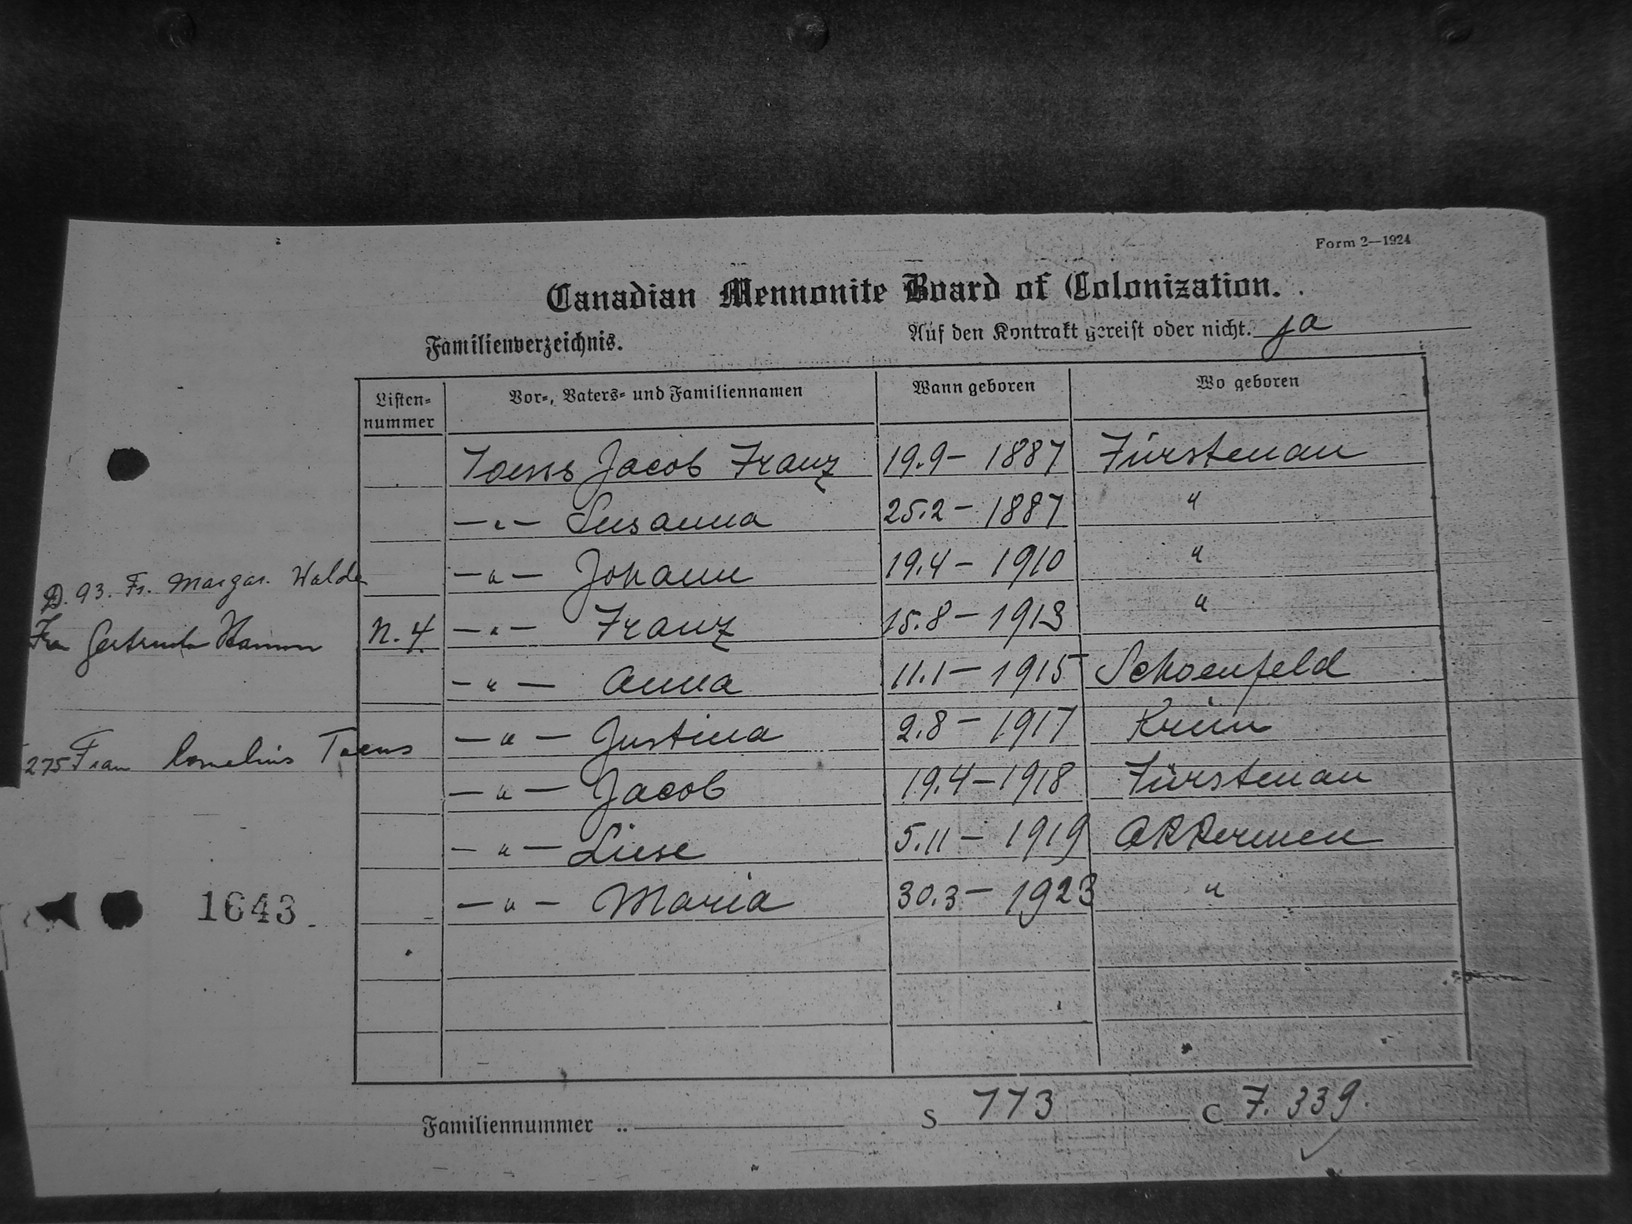 Form 2—1924
Canadian Mennonite Board of Colonization.
Familienverzeichnis.
Auf den Kontrakt gereist oder nicht. ja
Listen-nummer Vor-, Vaters- und Familiennamen Wann geboren Wo geboren
Toews Jacob Franz 19.9 – 1887 Fürstenau
—"— Susanna 25.2 – 1887 "
—"— Johann 19.4 – 1910 "
D. 93. Fr. Margar. Walde
N. 4 —"— Franz 15.8 – 1913 "
Gertruda
—"— Anna 11.1 – 1915 Schoenfeld
—"— Justina 2.8 – 1917 Krim
275 Frau Cornelius Toews
—"— Jacob 19.4 – 1918 Fürstenau
—"— Liese 5.11 – 1919 Akkermen
—"— Maria 30.3 – 1923 "
1643
Familiennummer
S 773
C 7.339.